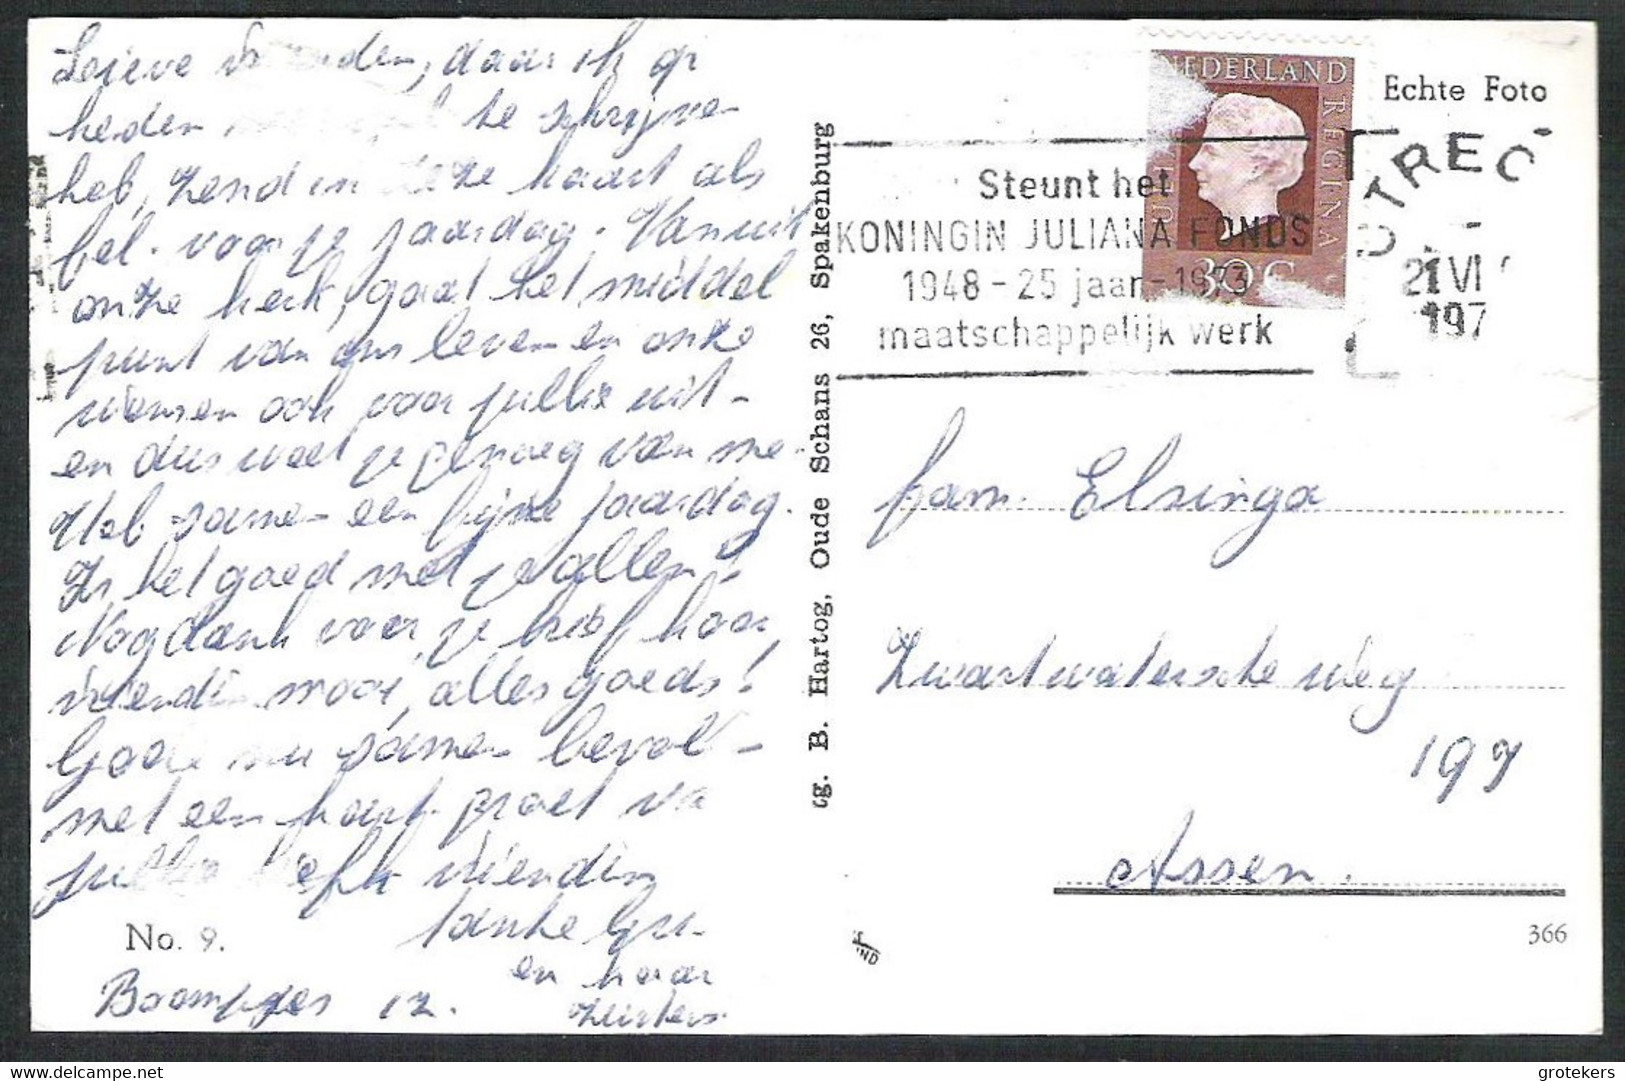 Lieve vrienden, daar ik op
heden te schrijven
heb, zend in deze kaart als
fel. voor je jaardag. Vanuit
onze kerk, gaat het middel
punt van ons leven en onze
wensen ook voor jullie uit-
en dus weet je genoeg van me-
Heb samen een fijne jaardag.
Is het goed met je allen?
Nog dank voor je brief, haar
vriendin maar, alles goeds!
samen bevol-
met een hart. groet va
jullie vriendin
tante
en haar
zusters.
No. 9.
Boompjes 12.
tg. B. Hartog, Oude Schans 26, Spakenburg
Echte Foto
NEDERLAND
JULIANA REGINA
30 C
Steunt het
KONINGIN JULIANA FONDS
1948 - 25 jaar - 1973
maatschappelijk werk
UTREC
21 VI
197
fam. Elsinga
Zwartwatersche weg
197
Assen.
366
© grotekers